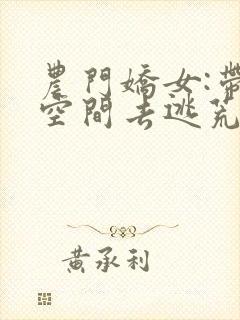 農門嬌女:帶
空間去逃荒
黃承利